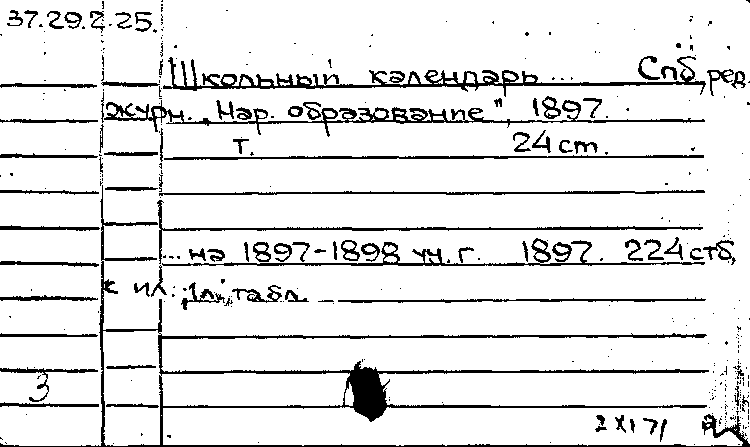 37.29.2.25.
Школьный календарь ... Спб, ред.
журн. „Нар. образование", 1897.
т. 24 cm.
... на 1897-1898 уч. г. 1897. 224 стб,
с ил.; 1 л. табл.
3
2 XI 71